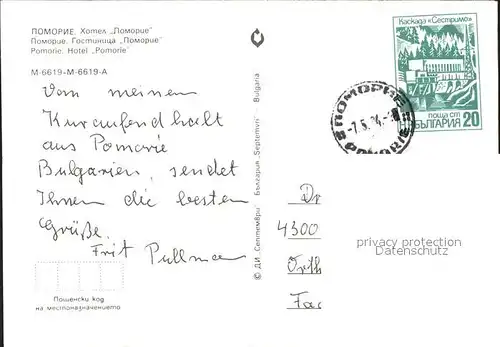 ПОМОРИЕ. Хотел „Поморие"
Поморие. Гостиница „Поморие"
Pomorie. Hotel „Pomorie"
М-6619-М-6619-А
Von meinem
Kuraufendhalt
aus Pomorie
Bulgarien, sendet
Ihnen die besten
Grüße.
Frit Pullman
Пощенски код
на местоназначението
© ДИ „Септември" България „Septemvri" Bulgaria
Каскада „Сестримо"
поща ст
НР БЪЛГАРИЯ 20
ПОМОРИЕ
-7.5.
POMORIE
Dr
4300
Orth
Fac
privacy protection
Datenschutz